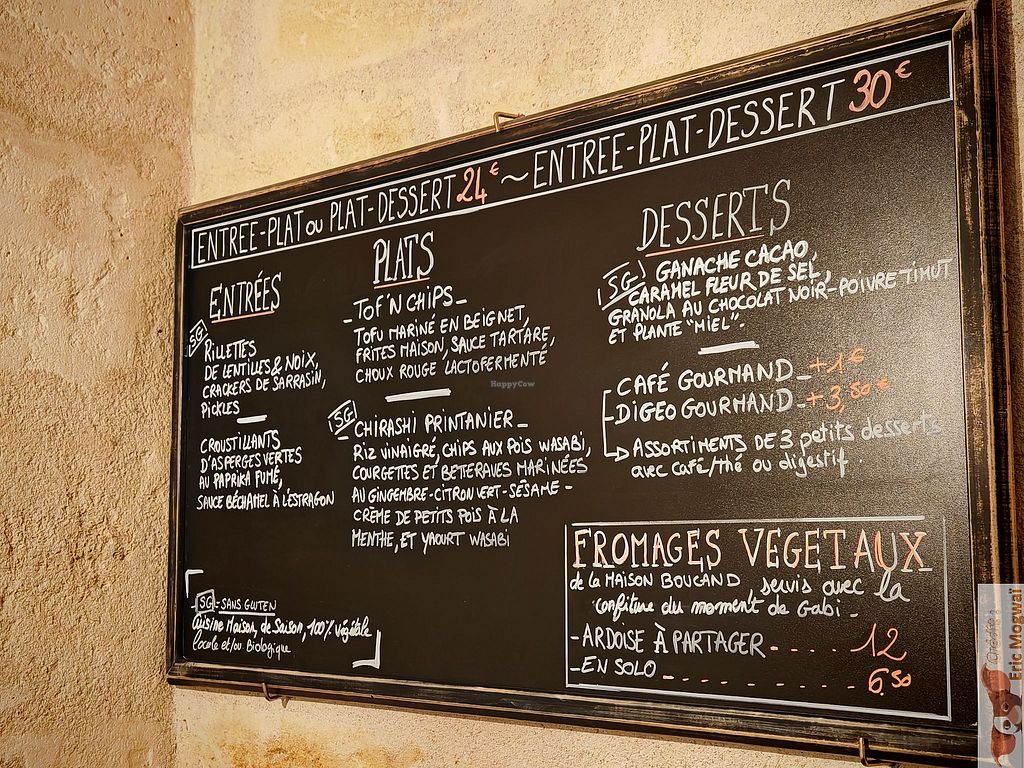 ENTREE-PLAT OU PLAT-DESSERT 24€ ~ ENTREE-PLAT-DESSERT 30€
ENTRÉES
SG
RILLETTES
DE LENTILLES & NOIX,
CRACKERS DE SARRASIN,
PICKLES
CROUSTILLANTS
D'ASPERGES VERTES
AU PAPRIKA FUMÉ,
SAUCE BÉCHAMEL À L'ESTRAGON
SG = SANS GLUTEN
Cuisine Maison, de Saison, 100% végétale
locale et/ou Biologique
PLATS
- TOF'N CHIPS -
TOFU MARINÉ EN BEIGNET,
FRITES MAISON, SAUCE TARTARE,
CHOUX ROUGE LACTOFERMENTÉ
SG
CHIRASHI PRINTANIER -
RIZ VINAIGRÉ, CHIPS AUX POIS WASABI,
COURGETTES ET BETTERAVES MARINÉES
AU GINGEMBRE - CITRON VERT - SÉSAME -
CRÈME DE PETITS POIS À LA
MENTHE, ET YAOURT WASABI
DESSERTS
SG
GANACHE CACAO,
CARAMEL FLEUR DE SEL,
GRANOLA AU CHOCOLAT NOIR-POIVRE TIMUT
ET PLANTE "MIEL".
CAFÉ GOURMAND - +1€
- DIGEO GOURMAND - +3,50€
ASSORTIMENTS DE 3 petits desserts
avec café/thé ou digestif.
FROMAGES VEGETAUX
de la MAISON BOUCAND servis avec la
confiture du moment de Gabi -
- ARDOISE À PARTAGER - . . . . 12
- EN SOLO - . . . . . . . . 6,50
HappyCow
Crédits :
Eric Mogwai